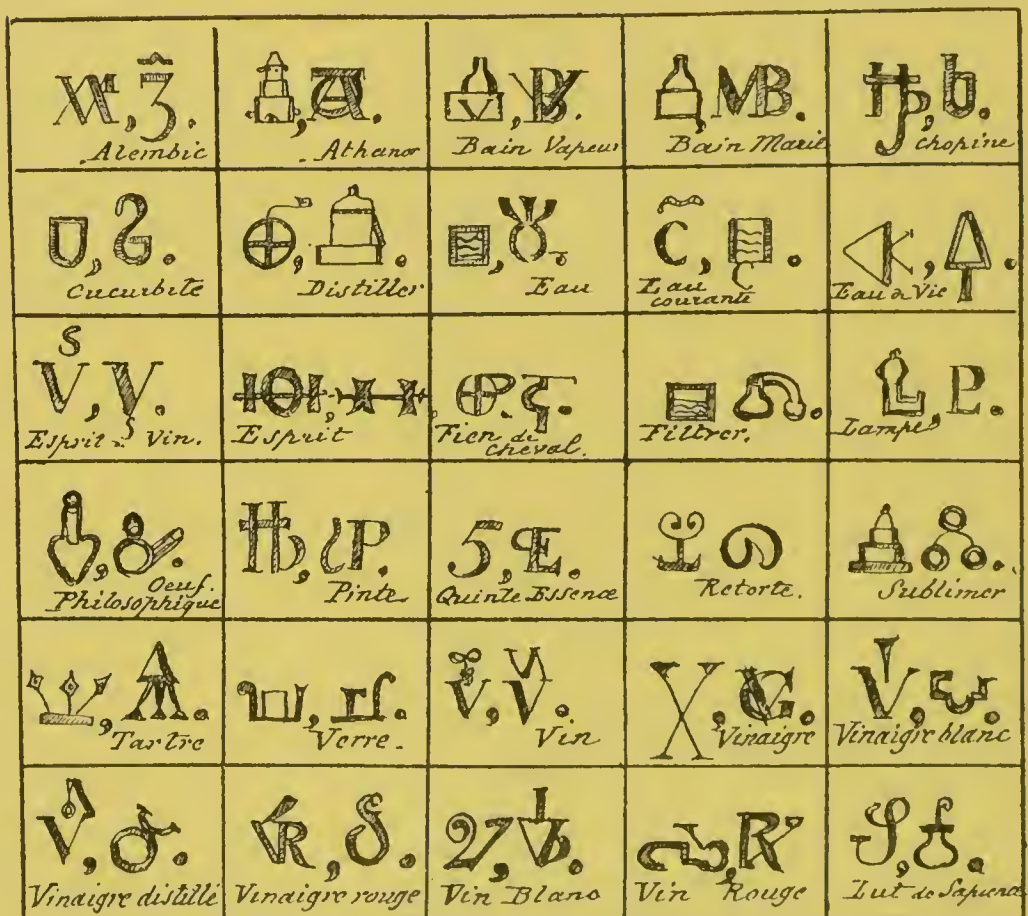 Alembic
Athanor
Bain Vapeur
Bain Marie
Chopine
Cucurbite
Distiller
Eau
Eau
courante
Eau de Vie
Esprit de Vin.
Esprit
Fien de
cheval.
Filtrer.
Lampe
Oeuf.
Philosophique
Pinte
Quinte Essence
Retorte.
Sublimer
Tartre
Verre.
Vin
Vinaigre
Vinaigre blanc
Vinaigre distillé
Vinaigre rouge
Vin Blanc
Vin Rouge
Lut de Sapience